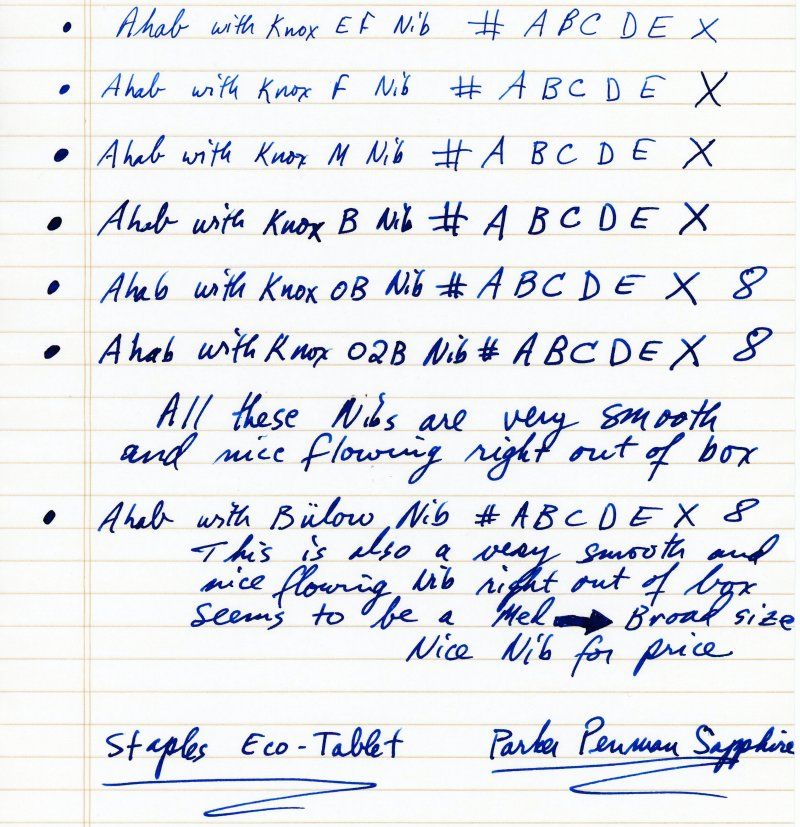 • Ahab with Knox EF Nib # A B C D E X
• Ahab with Knox F Nib # A B C D E X
• Ahab with Knox M Nib # A B C D E X
• Ahab with Knox B Nib # A B C D E X
• Ahab with Knox OB Nib # A B C D E X 8
• Ahab with Knox O2B Nib # A B C D E X 8
All these Nibs are very smooth
and nice flowing right out of box
• Ahab with Bülow Nib # A B C D E X 8
This is also a very smooth and
nice flowing Nib right out of box
Seems to be a Med ➡ Broad size
Nice Nib for price
Staples Eco-Tablet Parker Penman Sapphire